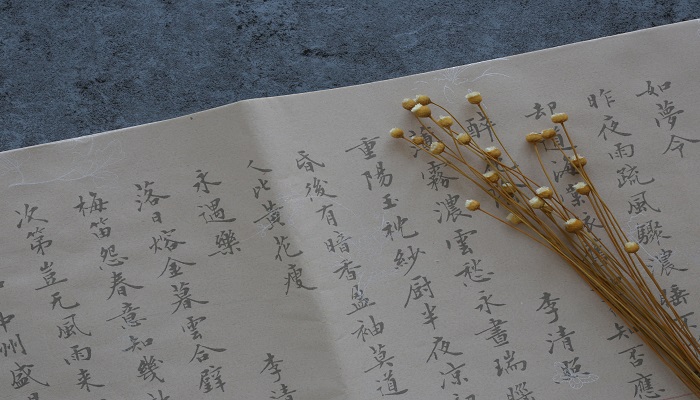 如夢令
昨夜雨疏風驟濃睡不
却道海棠知否應
醉李清照
薄霧濃雲愁永晝瑞腦
重陽玉枕紗厨半夜凉初
昏後有暗香盈袖莫道
人比黃花瘦 李清
永遇樂
落日熔金暮雲合璧
梅笛怨春意知幾
次第豈无風雨來
中州盛